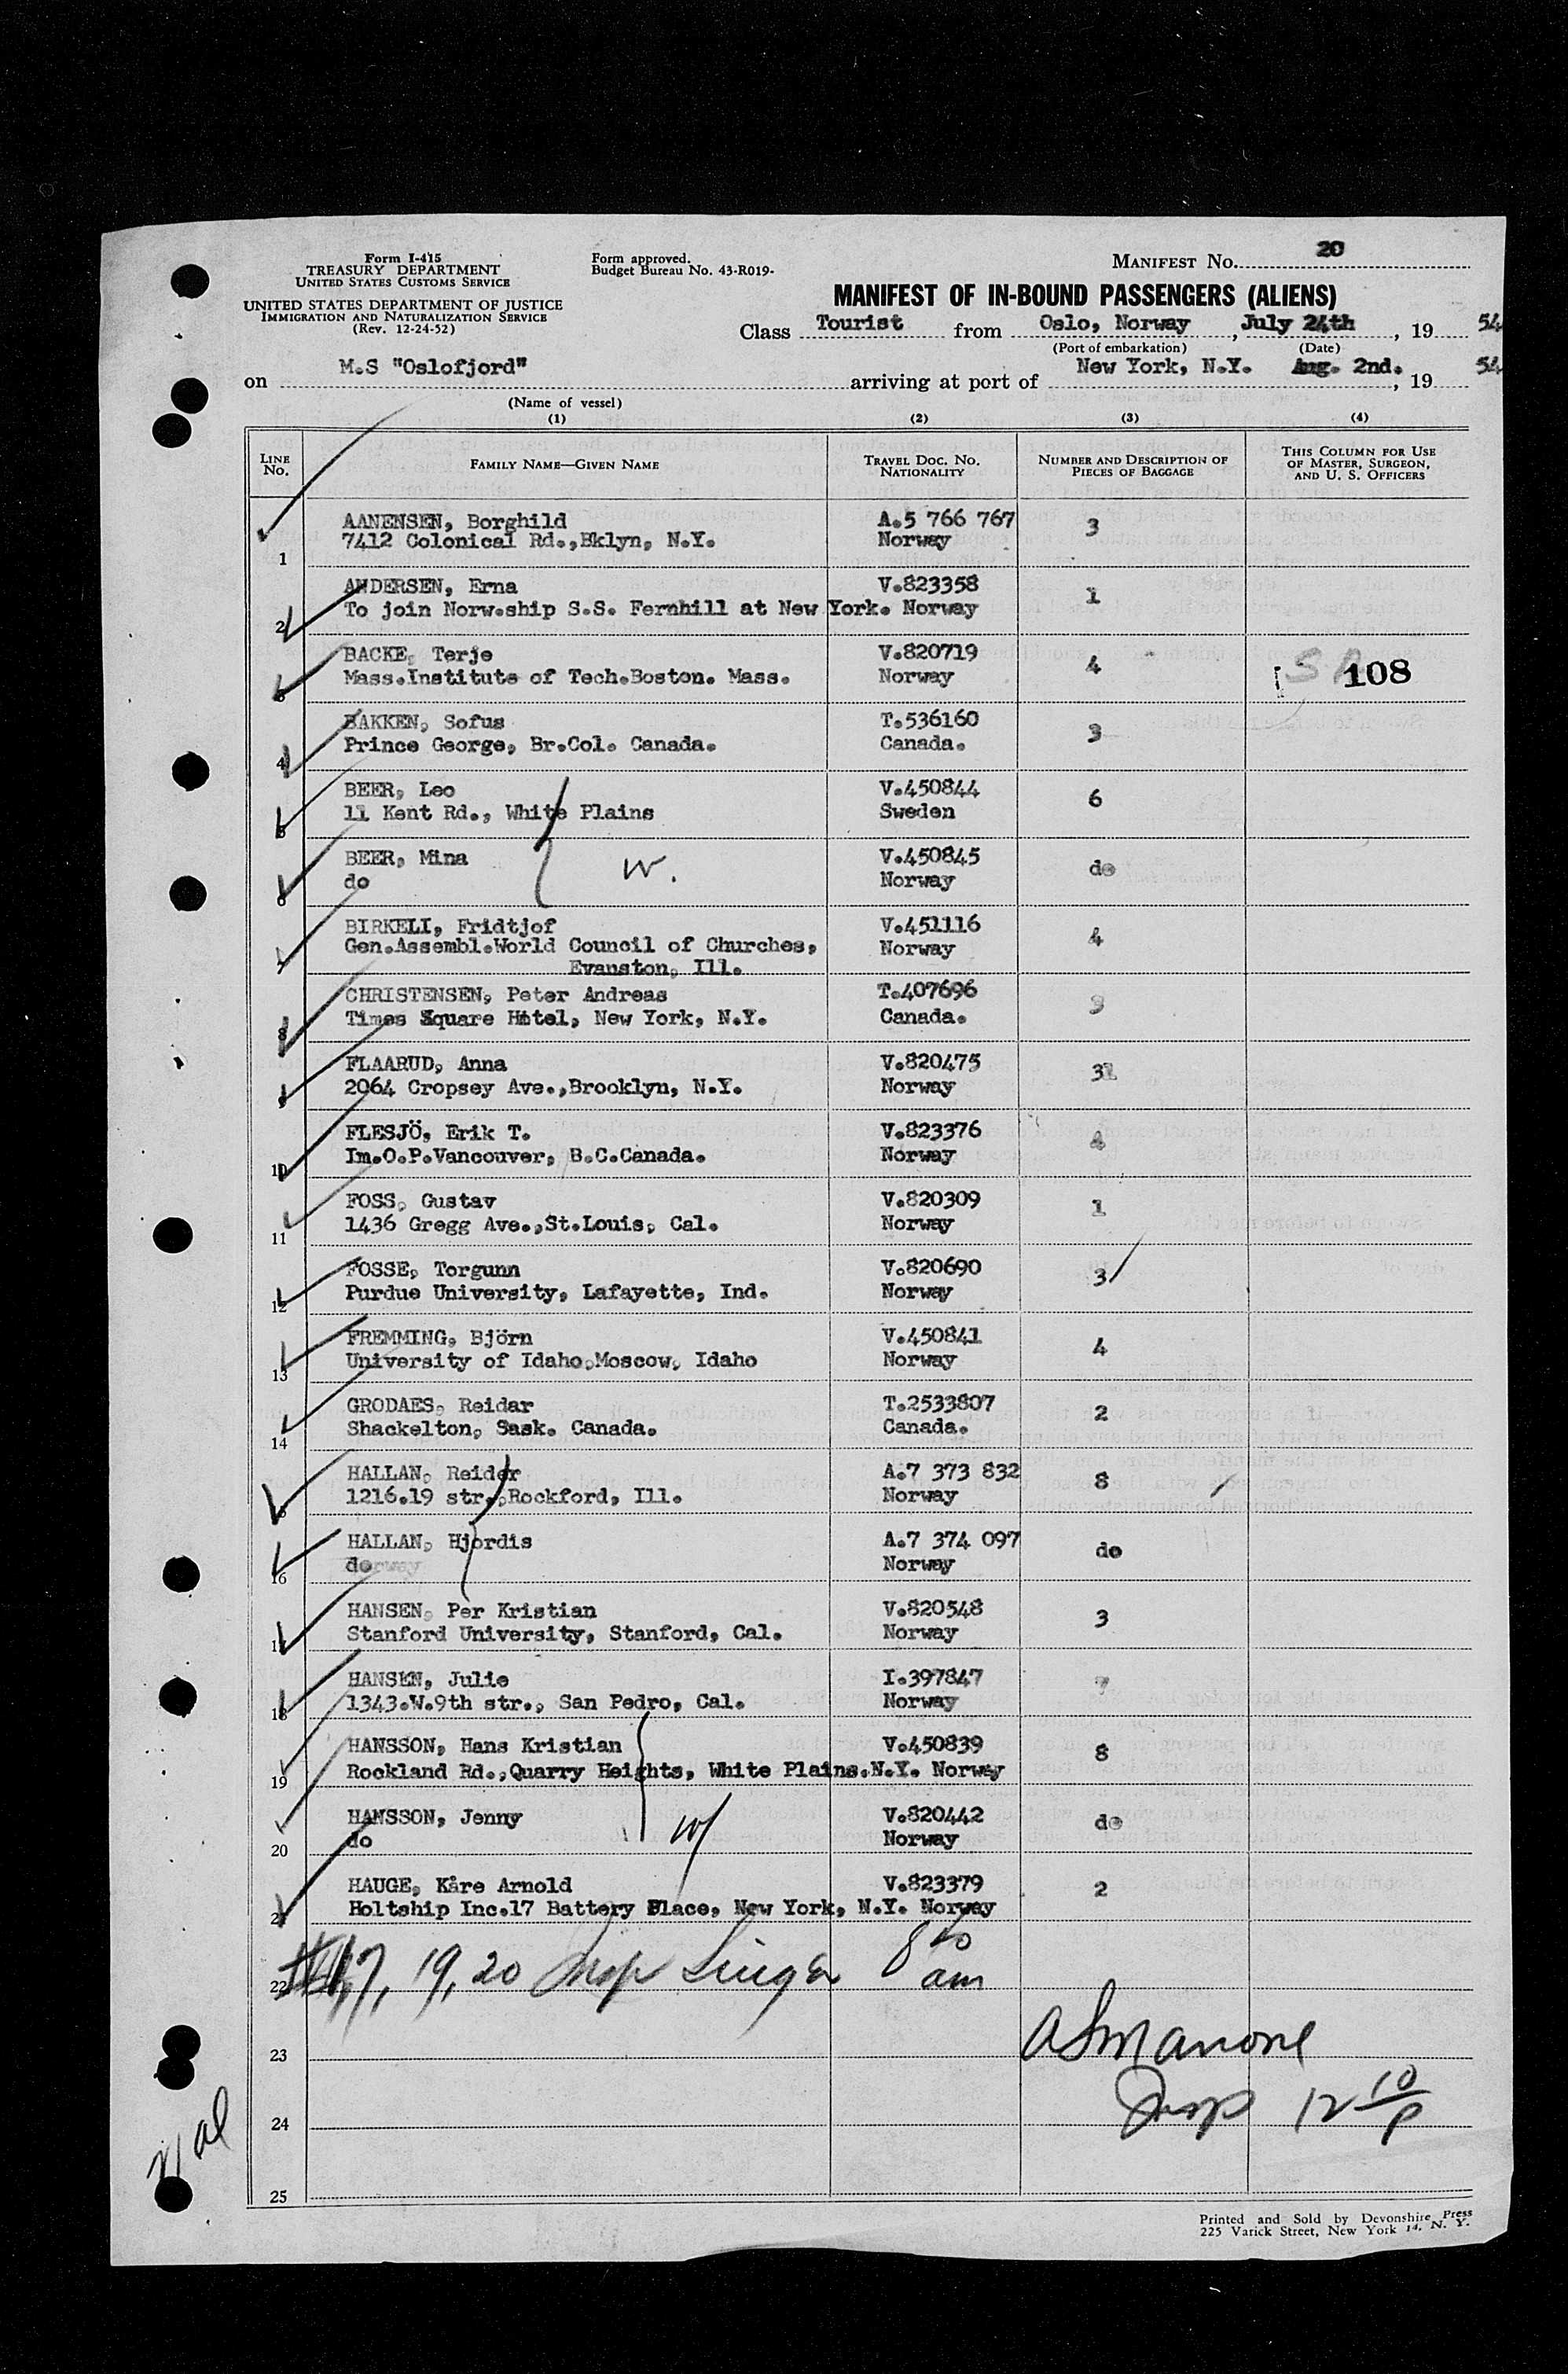 Form I-415
TREASURY DEPARTMENT
UNITED STATES CUSTOMS SERVICE
UNITED STATES DEPARTMENT OF JUSTICE
IMMIGRATION AND NATURALIZATION SERVICE
(Rev. 12-24-52)
Form approved.
Budget Bureau No. 43-R019-
MANIFEST NO. 20
MANIFEST OF IN-BOUND PASSENGERS (ALIENS)
Class Tourist from Oslo, Norway, July 24th, 19 54
(Port of embarkation) (Date)
on M.S "Oslofjord" arriving at port of New York, N.Y. Aug. 2nd., 19 54
(Name of vessel)
(1) (2) (3) (4)
LINE NO. FAMILY NAME—GIVEN NAME TRAVEL DOC. NO. NATIONALITY NUMBER AND DESCRIPTION OF PIECES OF BAGGAGE THIS COLUMN FOR USE OF MASTER, SURGEON, AND U. S. OFFICERS
AANENSEN, Borghild A.5 766 767 3
1 7412 Colonical Rd.,Bklyn, N.Y. Norway
ANDERSEN, Erna V.823358 1
2 To join Norw.ship S.S. Fernhill at New York. Norway
BACKE, Terje V.820719 4 108
3 Mass.Institute of Tech.Boston. Mass. Norway
BAKKEN, Sofus T.536160 3
4 Prince George, Br.Col. Canada. Canada.
BEER, Leo V.450844 6
5 11 Kent Rd., White Plains Sweden
BEER, Mina V.450845 do
6 do W. Norway
BIRKELI, Fridtjof V.451116 4
7 Gen.Assembl.World Council of Churches, Norway
Evanston, Ill.
CHRISTENSEN, Peter Andreas T.407696 3
8 Times Square Hotel, New York, N.Y. Canada.
FLAARUD, Anna V.820475 31
9 2064 Cropsey Ave.,Brooklyn, N.Y. Norway
FLESJÖ, Erik T. V.823376 4
10 Im.O.P.Vancouver, B.C.Canada. Norway
FOSS, Gustav V.820309 1
11 1436 Gregg Ave.,St.Louis, Cal. Norway
FOSSE, Torgunn V.820690 3
12 Purdue University, Lafayette, Ind. Norway
FREMMING, Björn V.450841 4
13 University of Idaho,Moscow, Idaho Norway
GRODAES, Reidar T.2533807 2
14 Shackelton, Sask. Canada. Canada.
HALLAN, Reider A.7 373 832 8
15 1216.19 str.,Rockford, Ill. Norway
HALLAN, Hjordis A.7 374 097 do
16 do Norway
HANSEN, Per Kristian V.820548 3
17 Stanford University, Stanford, Cal. Norway
HANSEN, Julie I.397847
18 1343.W.9th str., San Pedro, Cal. Norway
HANSSON, Hans Kristian V.450839 8
19 Rockland Rd.,Quarry Heights, White Plains.N.Y. Norway
HANSSON, Jenny V.820442 do
20 do W Norway
HAUGE, Kåre Arnold V.823379 2
21 Holtship Inc.17 Battery Place, New York, N.Y. Norway
22 17, 19, 20 Insp 8 am
23
24 Insp 12 10/P
25
Printed and Sold by Devonshire Press
225 Varick Street, New York 14, N. Y.